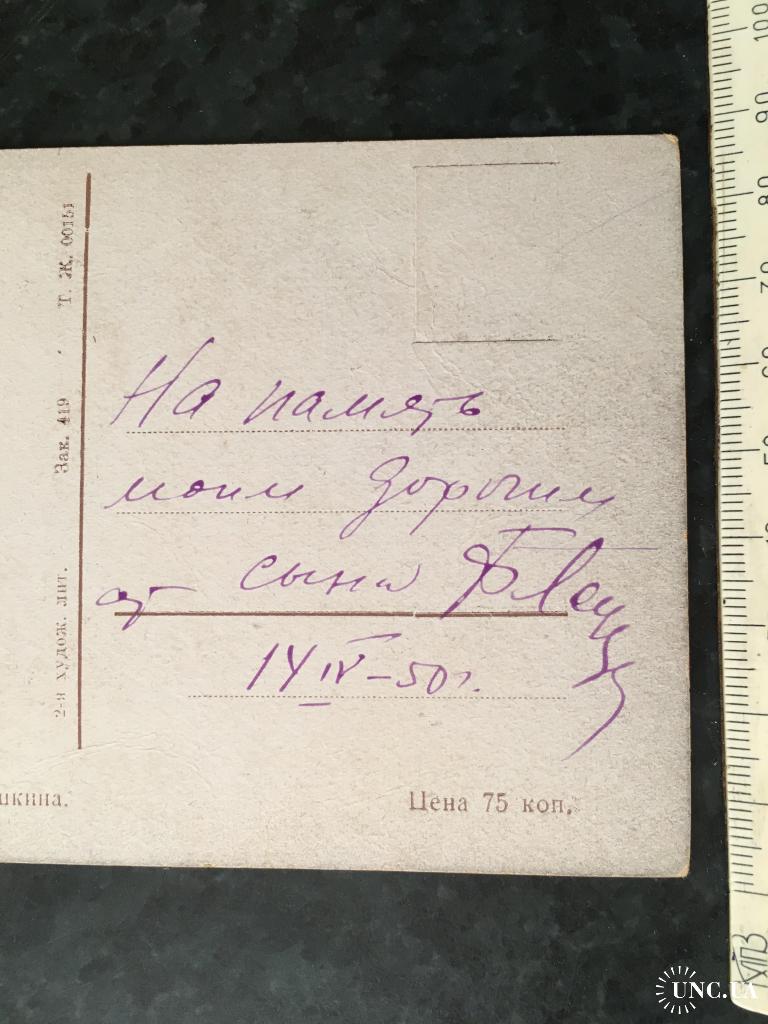 Т. Ж. 00151
Зак. 419
2-я худож. лит.
На память
моим дорогим
от сына
14 IV-50г.
Цена 75 коп.
100
90
80
70
60
50
UNC.UA